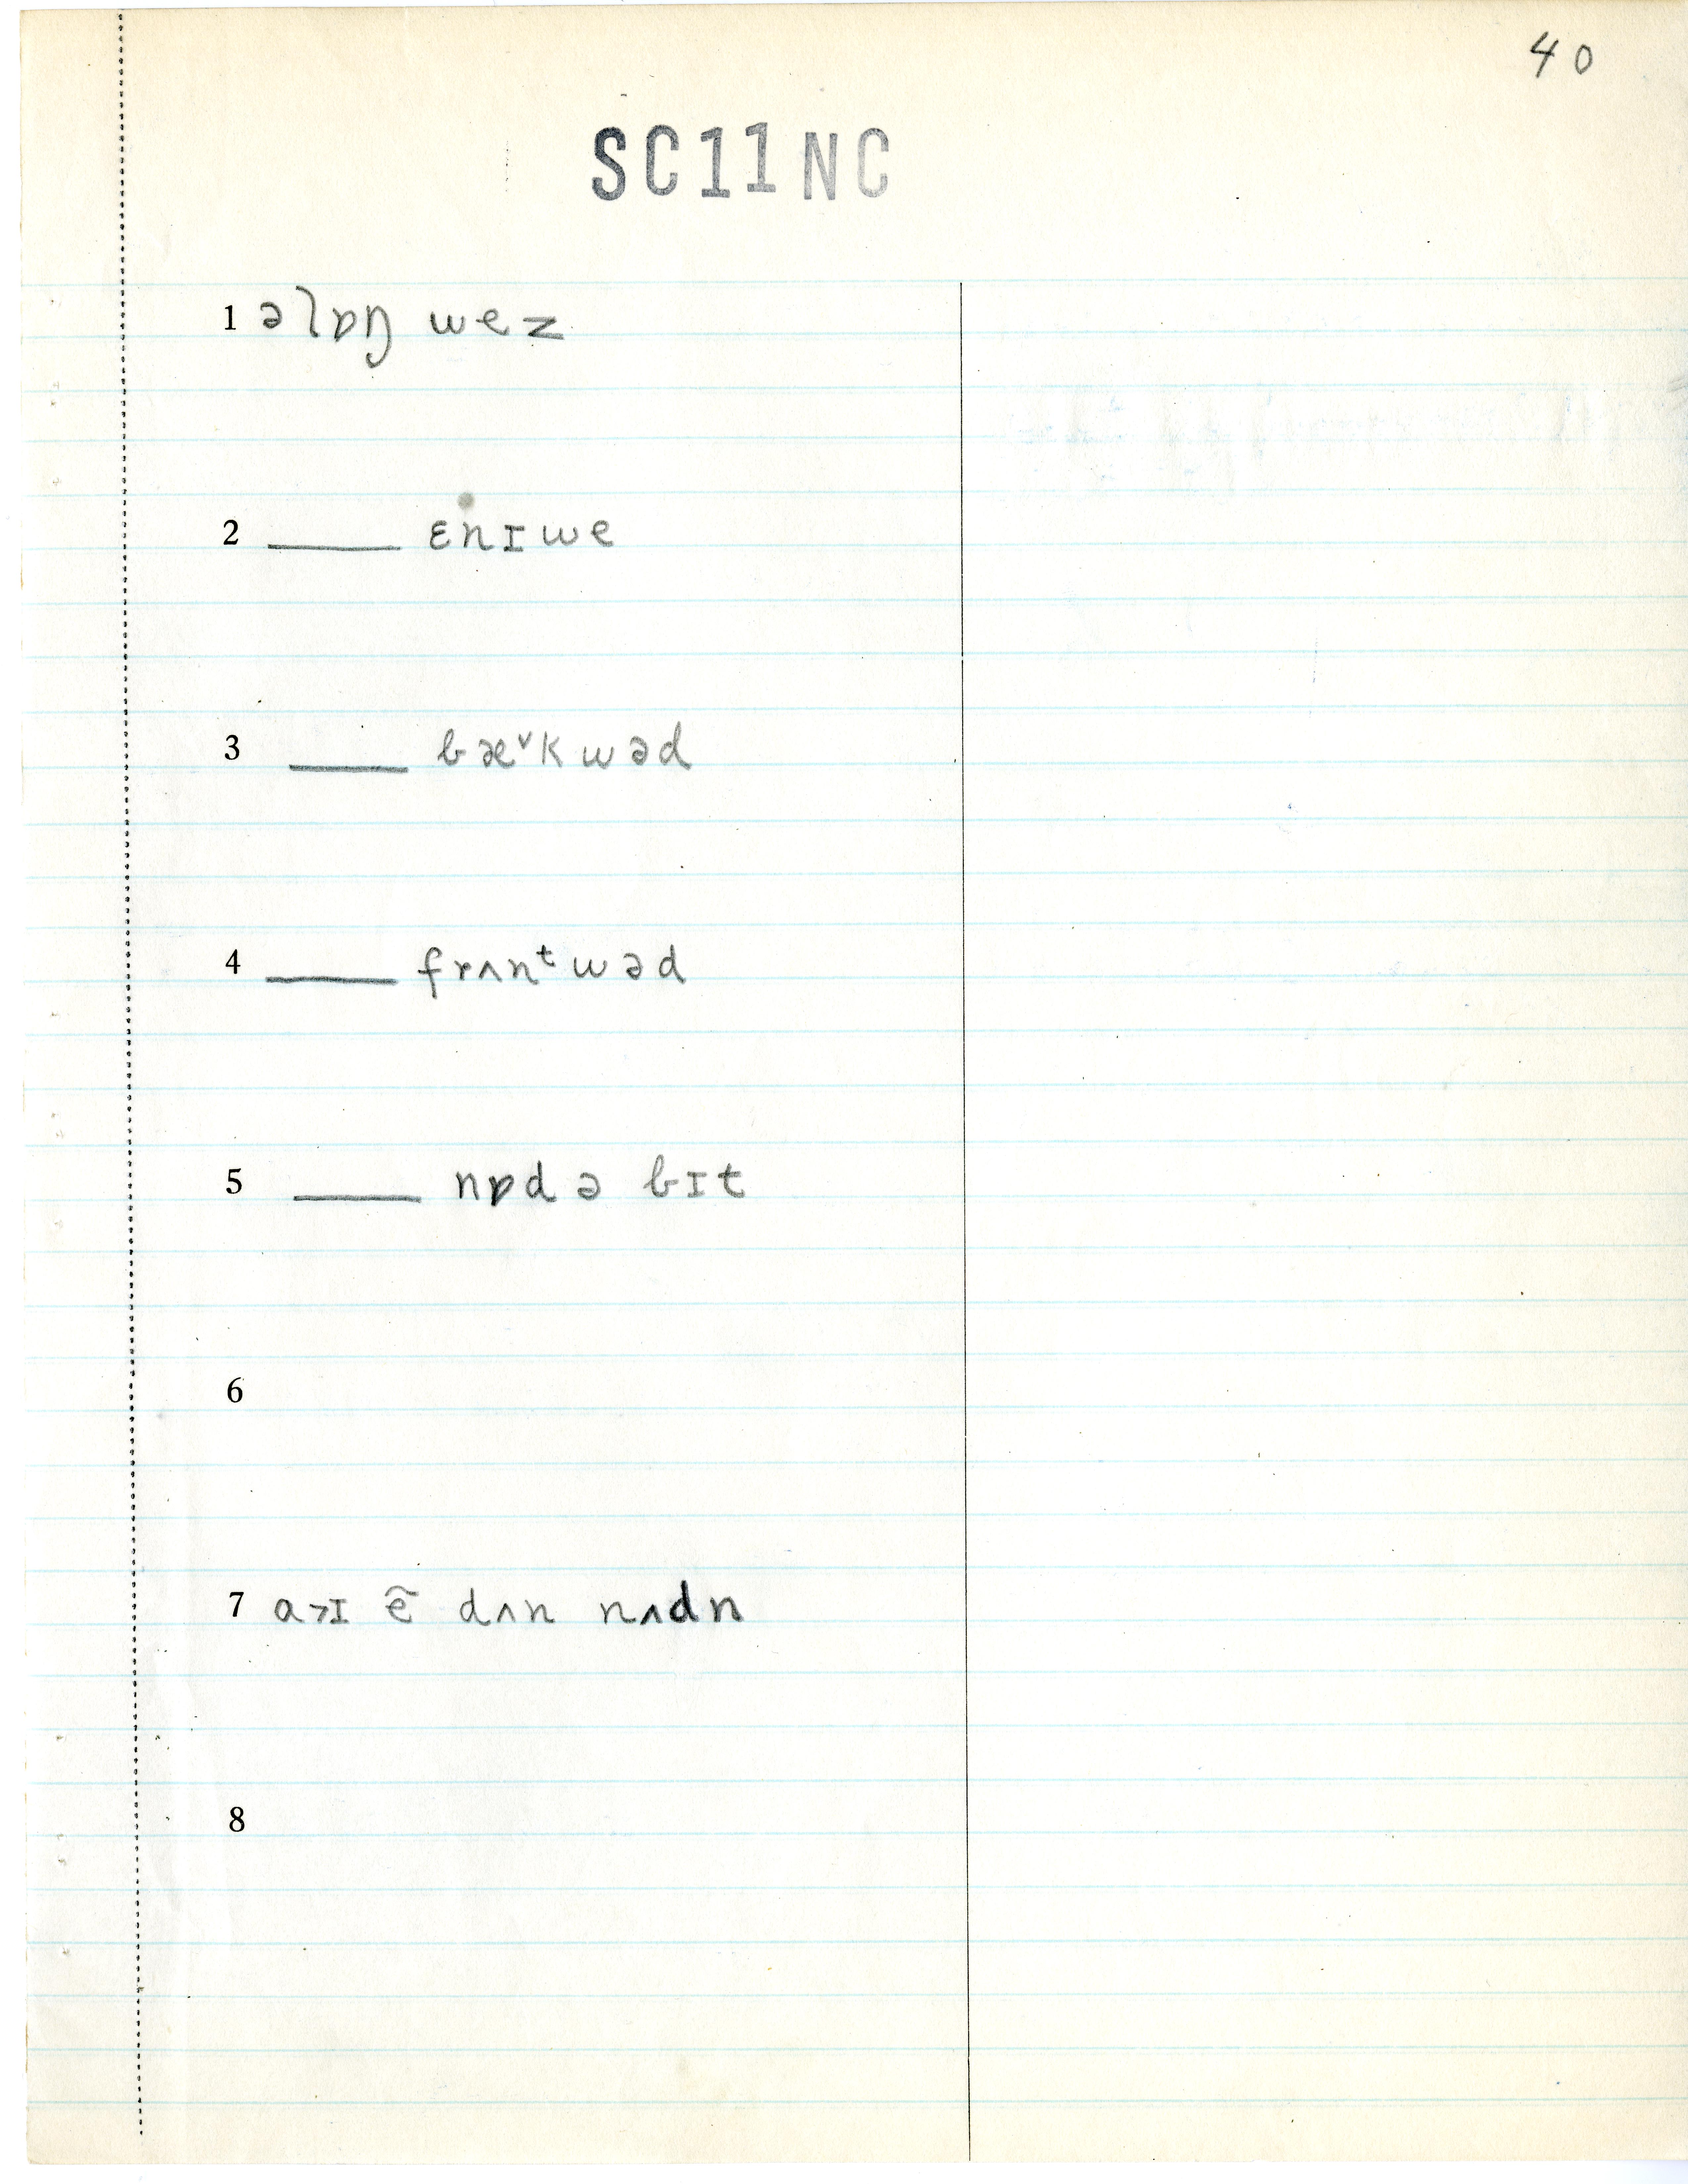 40
SC11NC
1 əlɒŋ wez
2 ____ ɛnɪwe
3 ____ bæ˅kwəd
4 ____ frʌnᵗwəd
5 ____ nɒd ə bɪt
6
7 a˃ɪ ẽ dʌn nʌdn
8